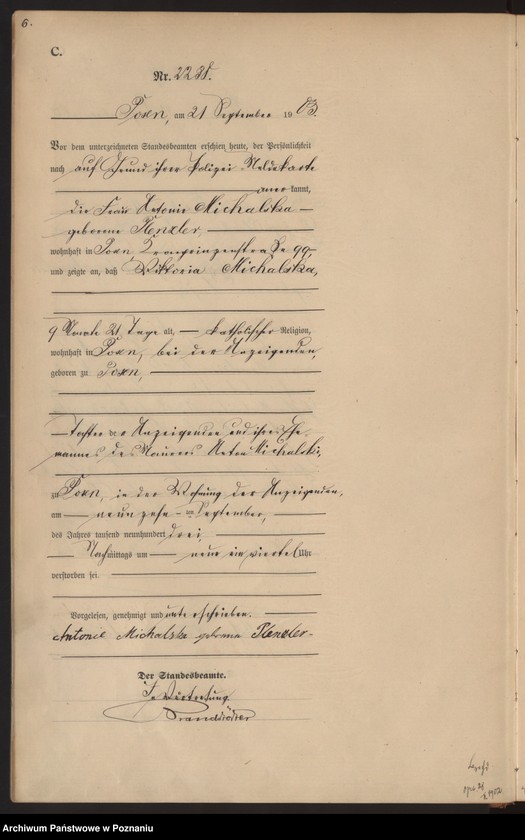 6.
C.
Nr. 2281.
Posen, am 21 September 1903.
Vor dem unterzeichneten Standesbeamten erschien heute, der Persönlichkeit
nach auf Grund ihrer Polizei Meldekarte
anerkannt,
die Frau Antonie Michalska
geborene Kenzler,
wohnhaft in Posen, Kronprinzenstraße 99,
und zeigte an, daß Viktoria Michalska,
9 Monate 21 Tage alt, katholischer Religion,
wohnhaft in Posen, bei der Anzeigenden,
geboren zu Posen,
Tochter der Anzeigenden und ihres Ehe
mannes des Maurers Anton Michalski,
zu Posen, in der Wohnung der Anzeigenden,
am neunzehn-ten September,
des Jahres tausend neunhundert drei,
Nachmittags um neun ein viertel Uhr
verstorben sei.
Vorgelesen, genehmigt und unterschrieben.
Antonie Michalska geborene Kenzler
Der Standesbeamte.
In Vertretung.
Archiwum Państwowe w Poznaniu